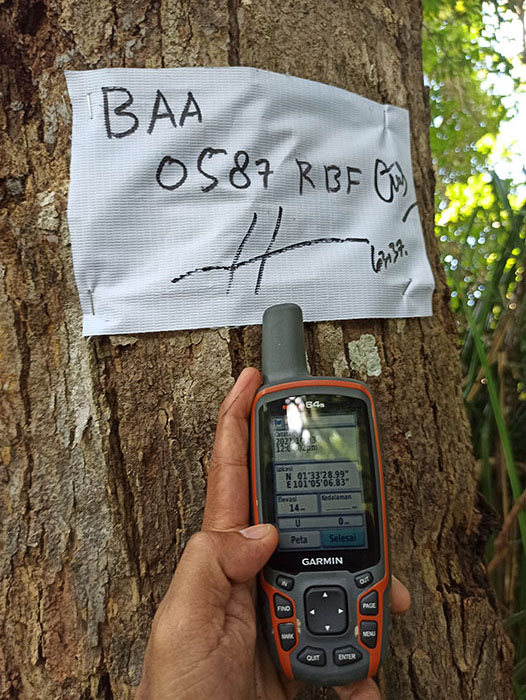 BAA
0587 RBF
63.37.
64s
12:0
Lokasi
N 01°33'28.99"
E 101°05'06.83"
Elevasi Kedalaman
14 m
U 0 m
Peta Selesai
GARMIN
IN OUT
FIND PAGE
MARK MENU
QUIT ENTER